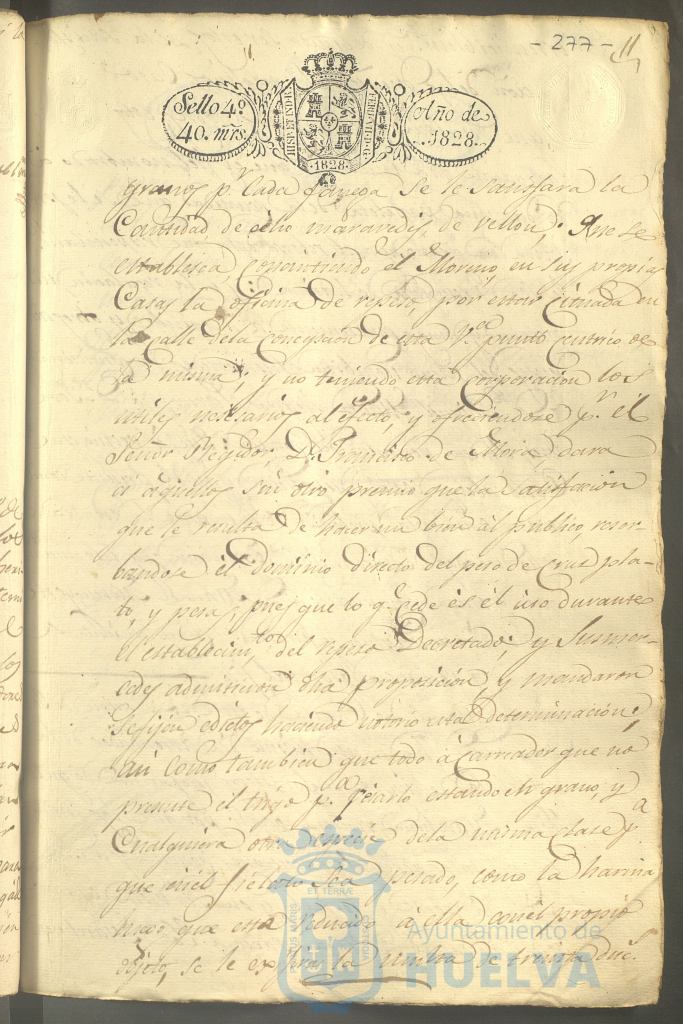 - 277 - 11
Sello 4º
40. mrs.
HISP. ET IND. R.
1828
Año de
1828.
granos pr. cada fanega se le satisfara la
Cantidad de ocho maravedis de vellon; Que se
establesca consintiendo el Moreno, en sus propias
Casas la oficina de repeso, por estar cituada en
la calle dela Concepsion de esta Va. punto centrico de
la misma; y no teniendo esta Corporacion los
utiles necesarios al efecto, y ofreciendose pr. el
Señor Regidor, Dn. Francisco de Mora, dara
a aquellos sin otro premio que la satisfacion
que le resulta de hacer un bien al publico, reser-
bandose el Dominio directo del peso de Cruz, pla-
to, y pesas, pues que lo q. cede es el uso durante
el establecimto. del repeso Decretado; y Susmer-
cedes admitieron dha proposicion, y mandaron
se fijen edictos haciendo notorio esta determinacion;
asi como tambien que todo acarriador que no
presente el trigo pa. pesarlo estando en grano, y
Cualquiera otra especie dela misma clase pa.
que en el fielato sea pesado, como la harina
luego que esta reducido á ella con el propio
objeto, se le exija la multa de treinta duc.
ET TERRÆ
Ayuntamiento de
HUELVA